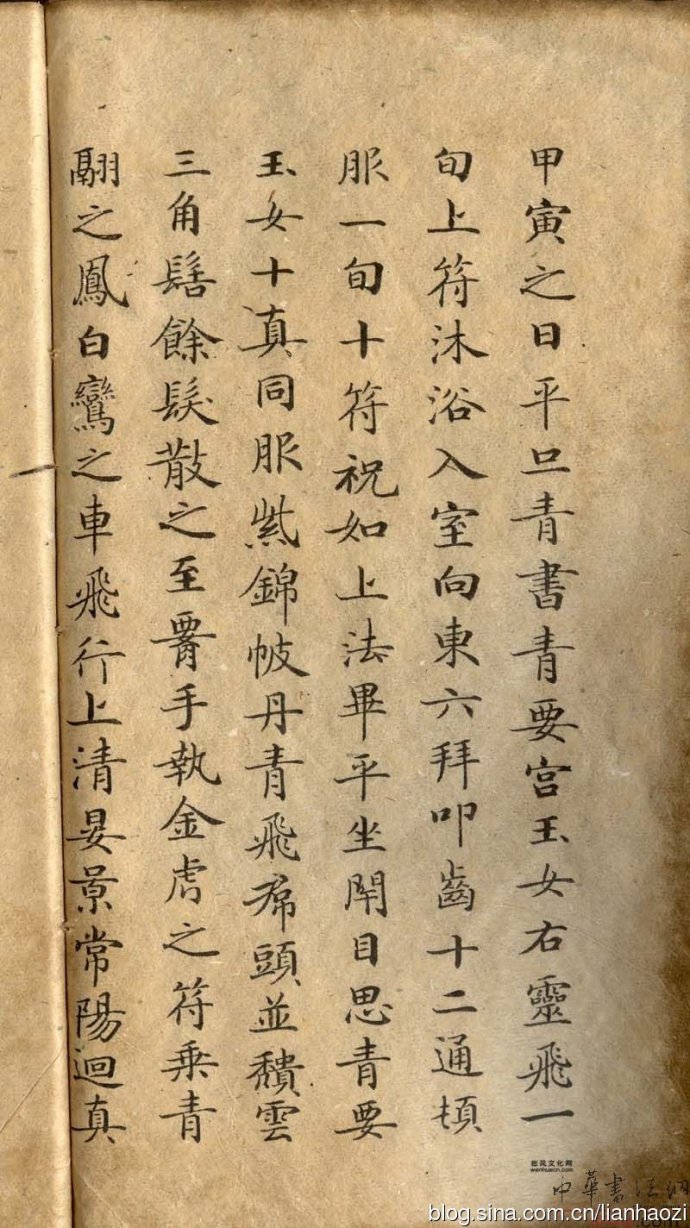 甲寅之日平旦青書青要宮玉女右靈飛一
旬上符沐浴入室向東六拜叩齒十二通頓
服一旬十符祝如上法畢平坐閉目思青要
玉女十真同服紫錦帔丹青飛帬頭並頹雲
三角髻餘髮散之至腰手執金虎之符乗青
翮之鳳白鸞之車飛行上清晏景常陽迴真
藝風文化網
wenhuacn.com
中華書法網
blog.sina.com.cn/lianhaozi